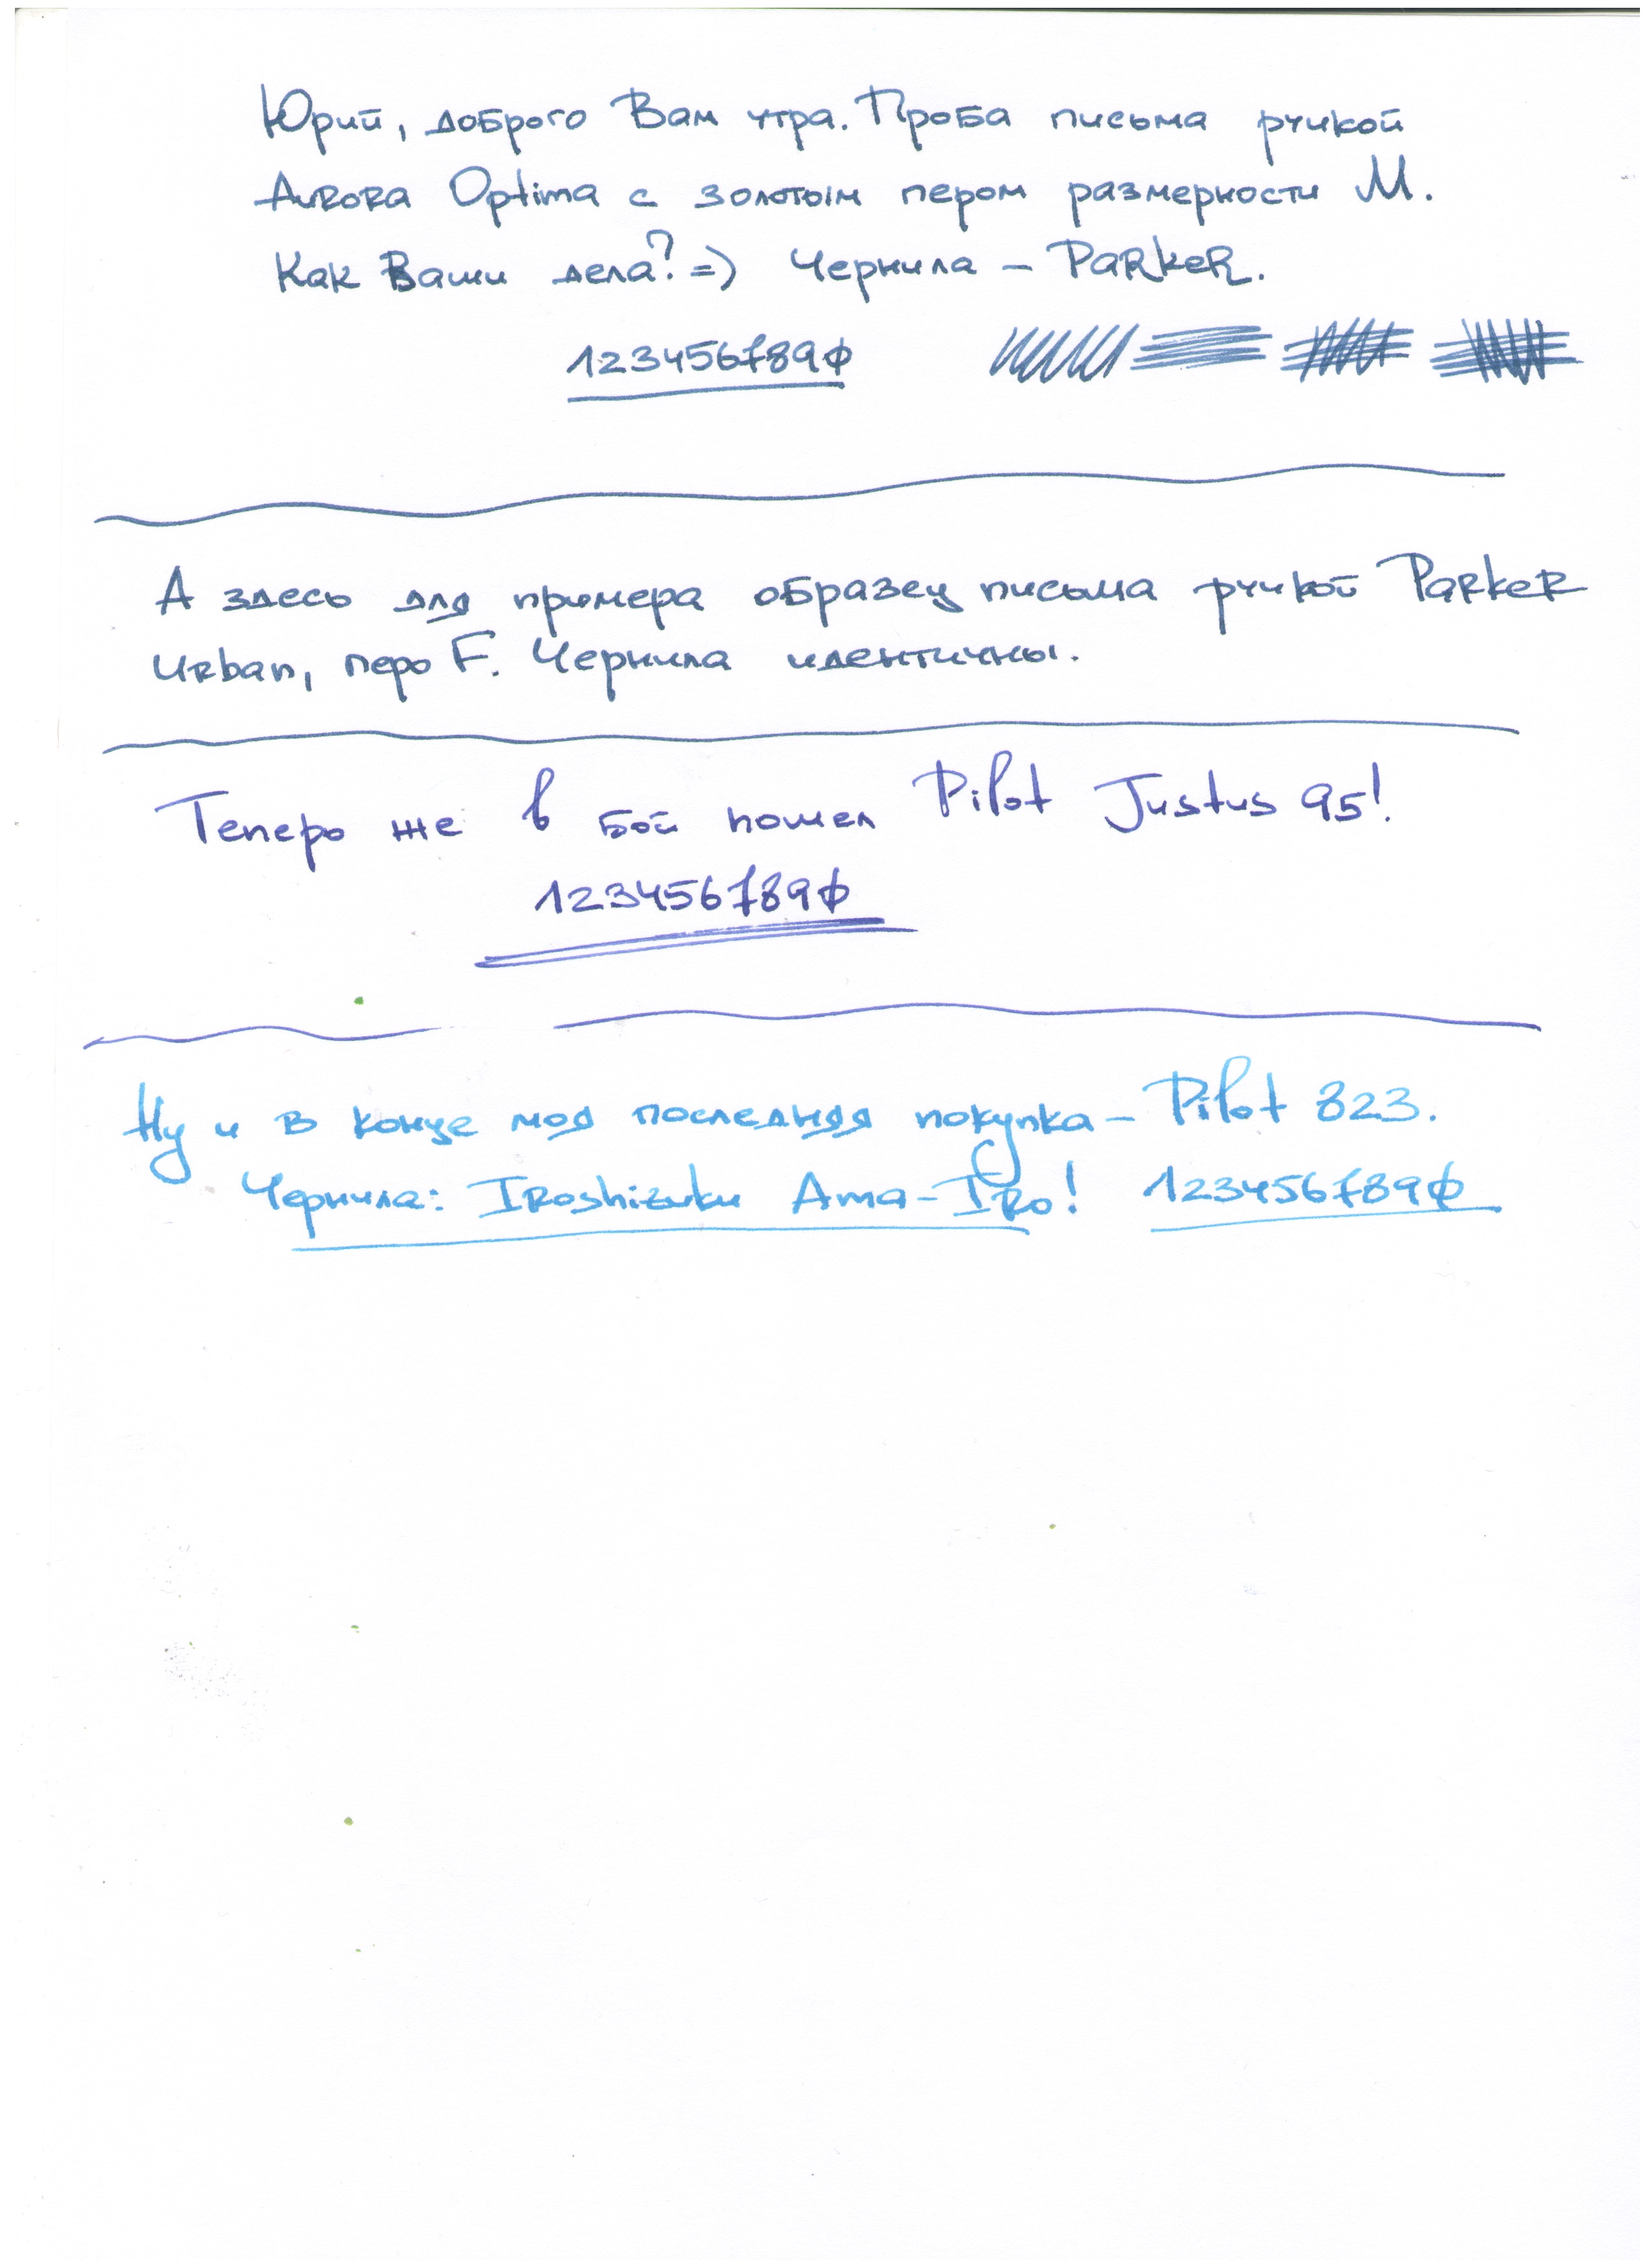 Юрий, доброго Вам утра. Проба письма ручкой
Aurora Optima с золотым пером размерности М.
Как Ваши дела? =) Чернила – Parker.
1234567890
А здесь для примера образец письма ручкой Parker
Urban, перо F. Чернила идентичны.
Теперь же в бой пошел Pilot Justus 95!
1234567890
Ну и в конце моя последняя покупка – Pilot 823.
Чернила: Iroshizuku Ama-Iro! 1234567890